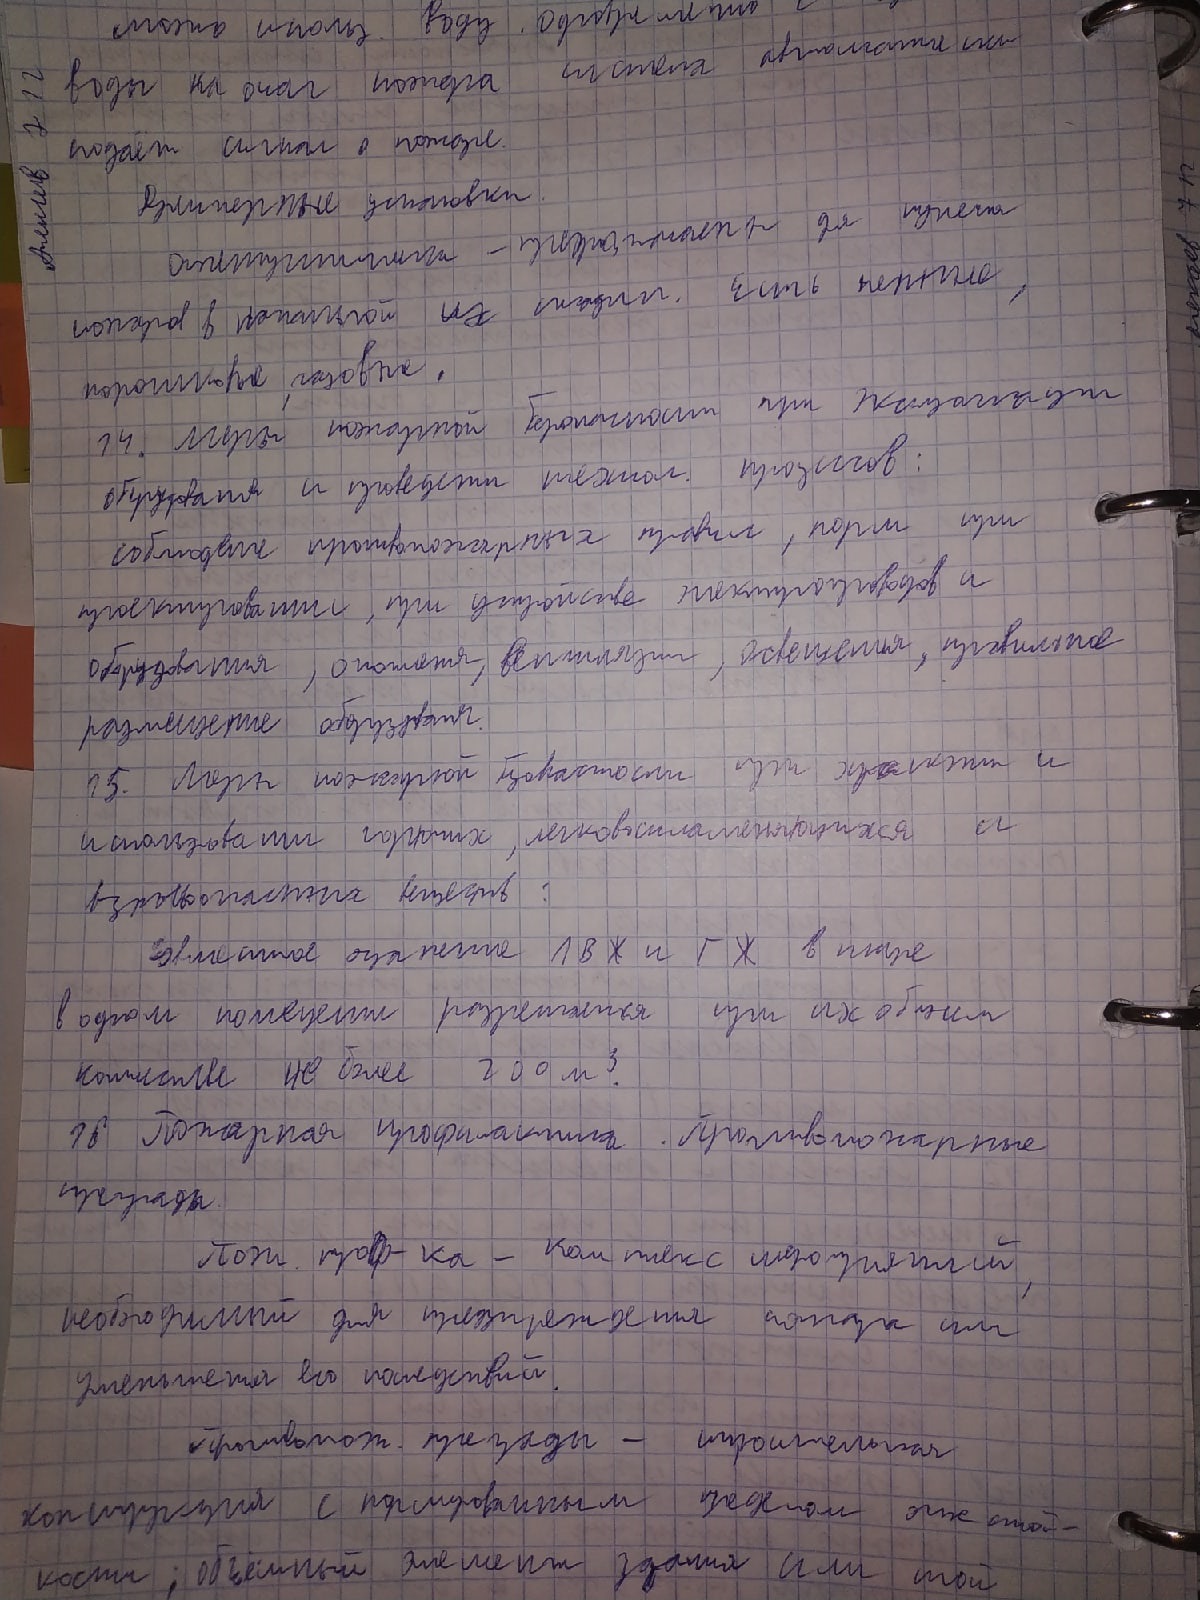 можно использ. воду. Одновременно с
воды на очаг пожара система автоматически
подаёт сигнал о пожаре.
Дренчерные установки.
Огнетушители – предназначены для тушения
пожаров в начальной их стадии. Есть пенные,
порошковые, газовые.
14. Меры пожарной безопасности при эксплуатации
оборудования и проведении технол. процессов:
соблюдение противопожарных правил, норм при
проектировании, при устройстве электропроводов и
оборудования, отопления, вентиляции, освещения, правильное
размещение оборудования.
15. Меры пожарной безопасности при хранении и
использовании горючих, легковоспламеняющихся и
взрывоопасных веществ:
Совместное хранение ЛВЖ и ГЖ в таре
в одном помещении разрешается при их общем
количестве не более 200 м³.
16 Пожарная профилактика. Противопожарные
преграды.
Пож. проф-ка – комплекс мероприятий,
необходимый для предупреждения пожара или
уменьшения его последствий.
Противопож. преграды – строительная
конструкция с нормированным пределом огнестой-
кости; объёмный элемент здания или иной